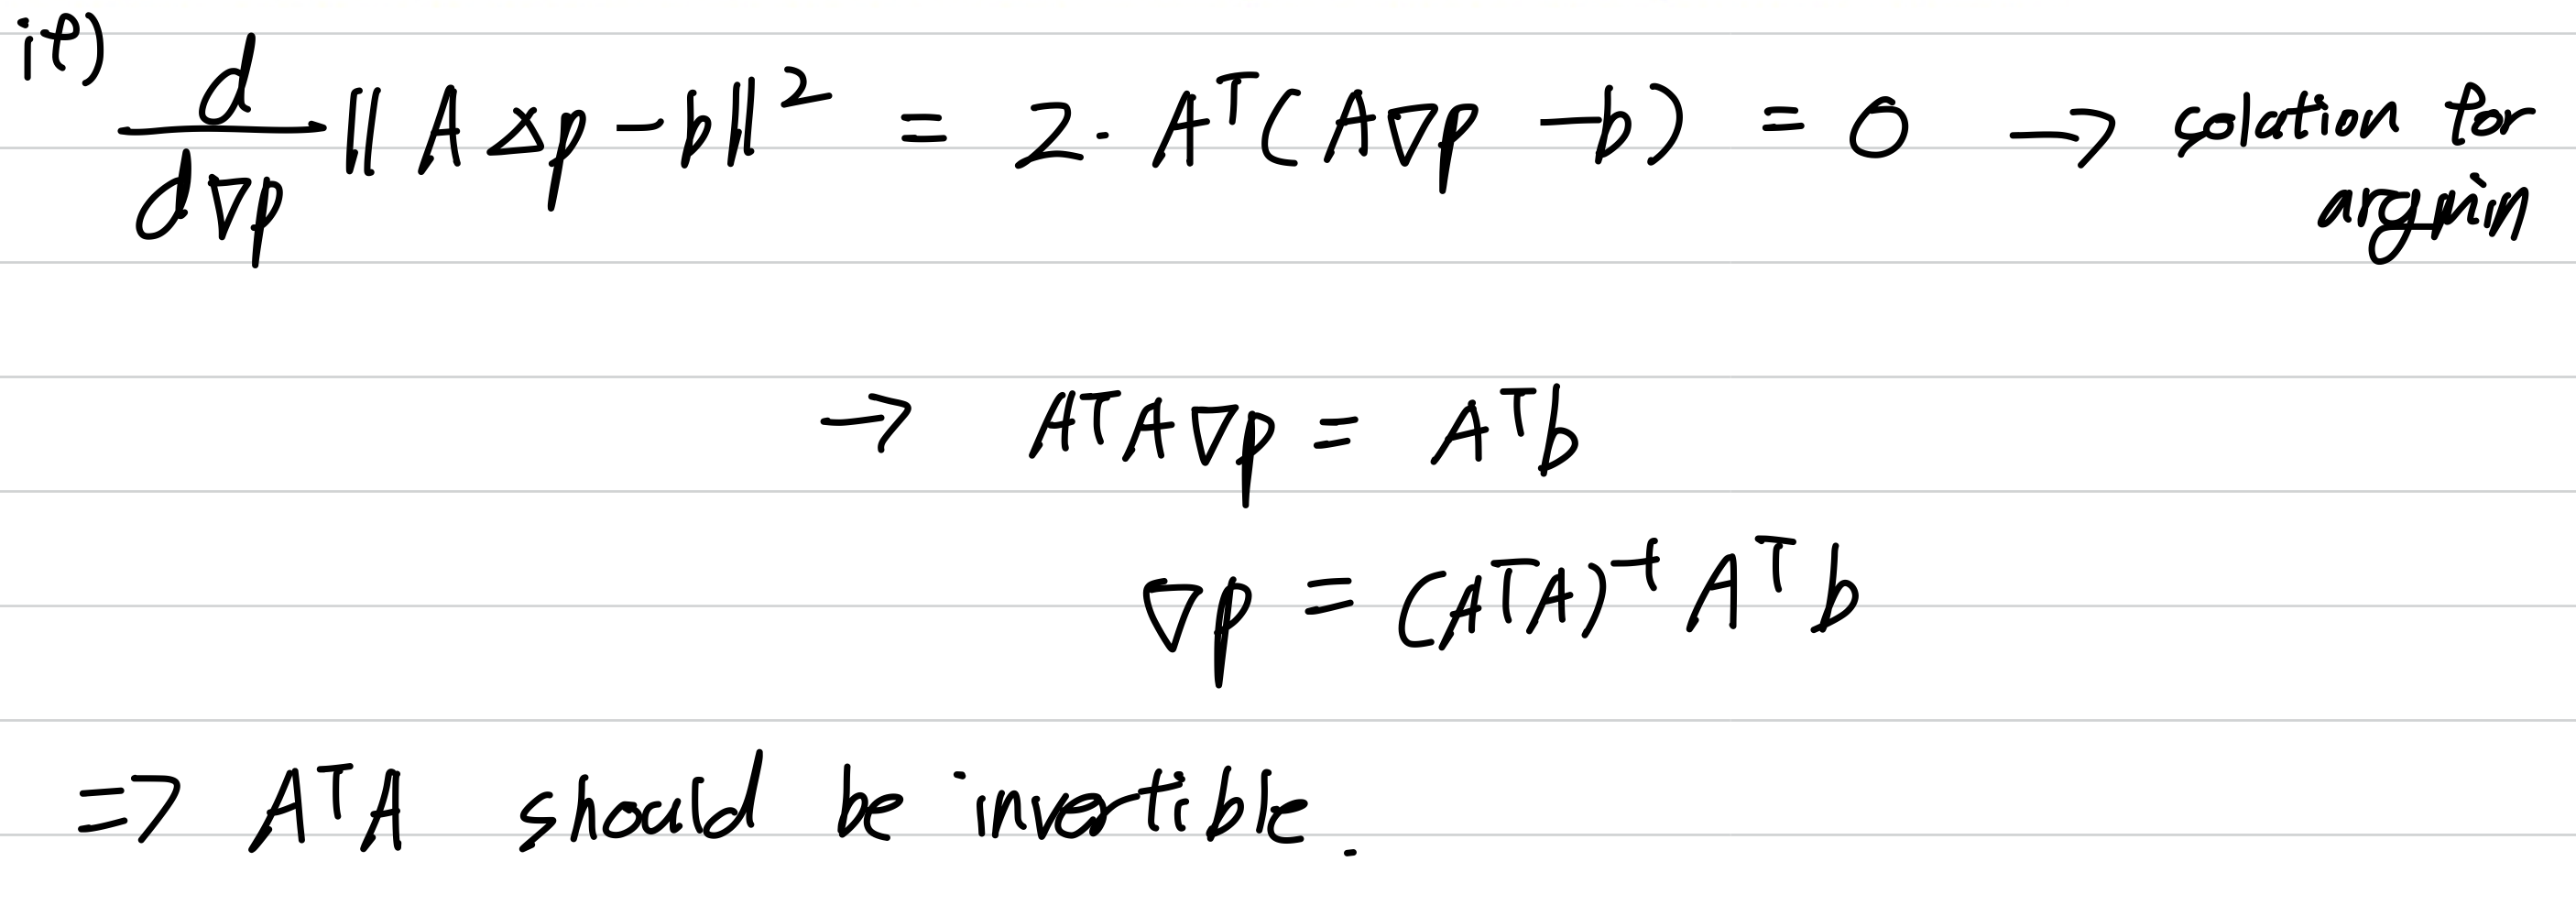 it)
d/d∇p ‖A△p − b‖² = 2 · Aᵀ(A∇p − b) = 0 → solation for
argmin
→ AᵀA∇p = Aᵀb
∇p = (AᵀA)⁻¹ Aᵀ b
⇒ AᵀA should be invertible.